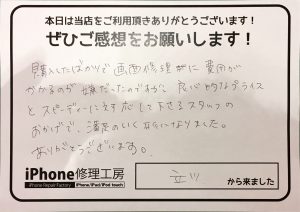 本日は当店をご利用頂きありがとうございます！
ぜひご感想をお願いします！
購入したばかりで画面修理に費用が
かかるのが嫌だったのですが、良心的なプライス
とスピーディーに対応して下さるスタッフの
おかげで、満足のいく修理になりました。
ありがとうございます。
iPhone修理工房
iPhone Repair Factory iPhone/iPad/iPod touch
から来ました